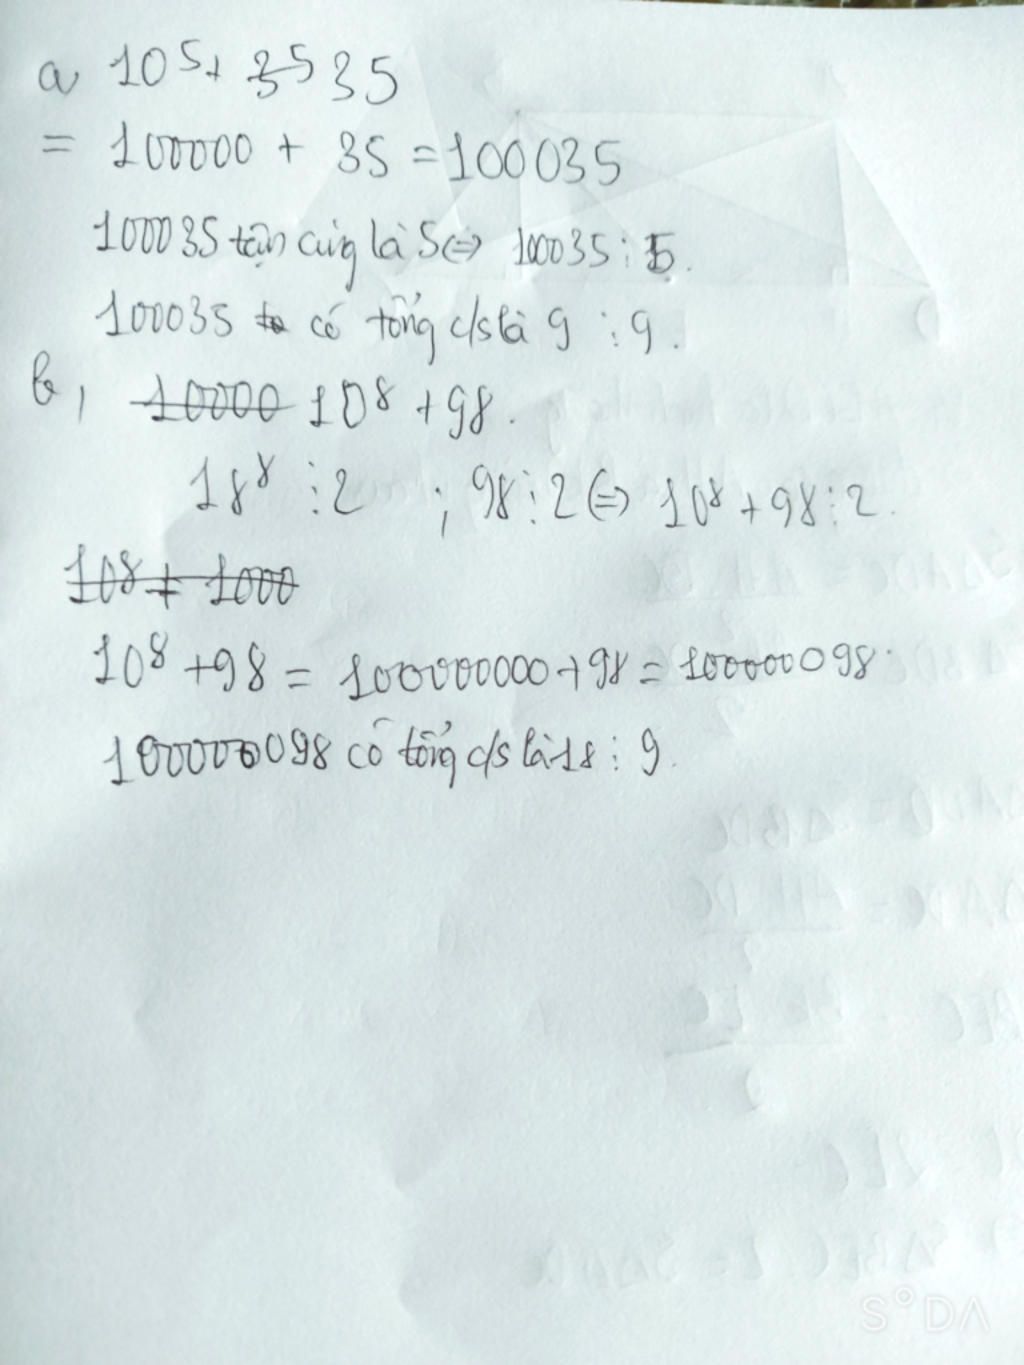 a 10⁵ + 35 35
= 100000 + 35 = 100035
100035 tận cùng là 5 <=> 100035 ⋮ 5.
100035 có tổng c/s là 9 ⋮ 9.
b, 10000 10⁸ + 98.
18⁸ ⋮ 2 ; 98 ⋮ 2 <=> 10⁸ + 98 ⋮ 2.
10⁸ + 1000
10⁸ + 98 = 100000000 + 98 = 100000098.
100000098 có tổng c/s là 18 ⋮ 9.
S°DA